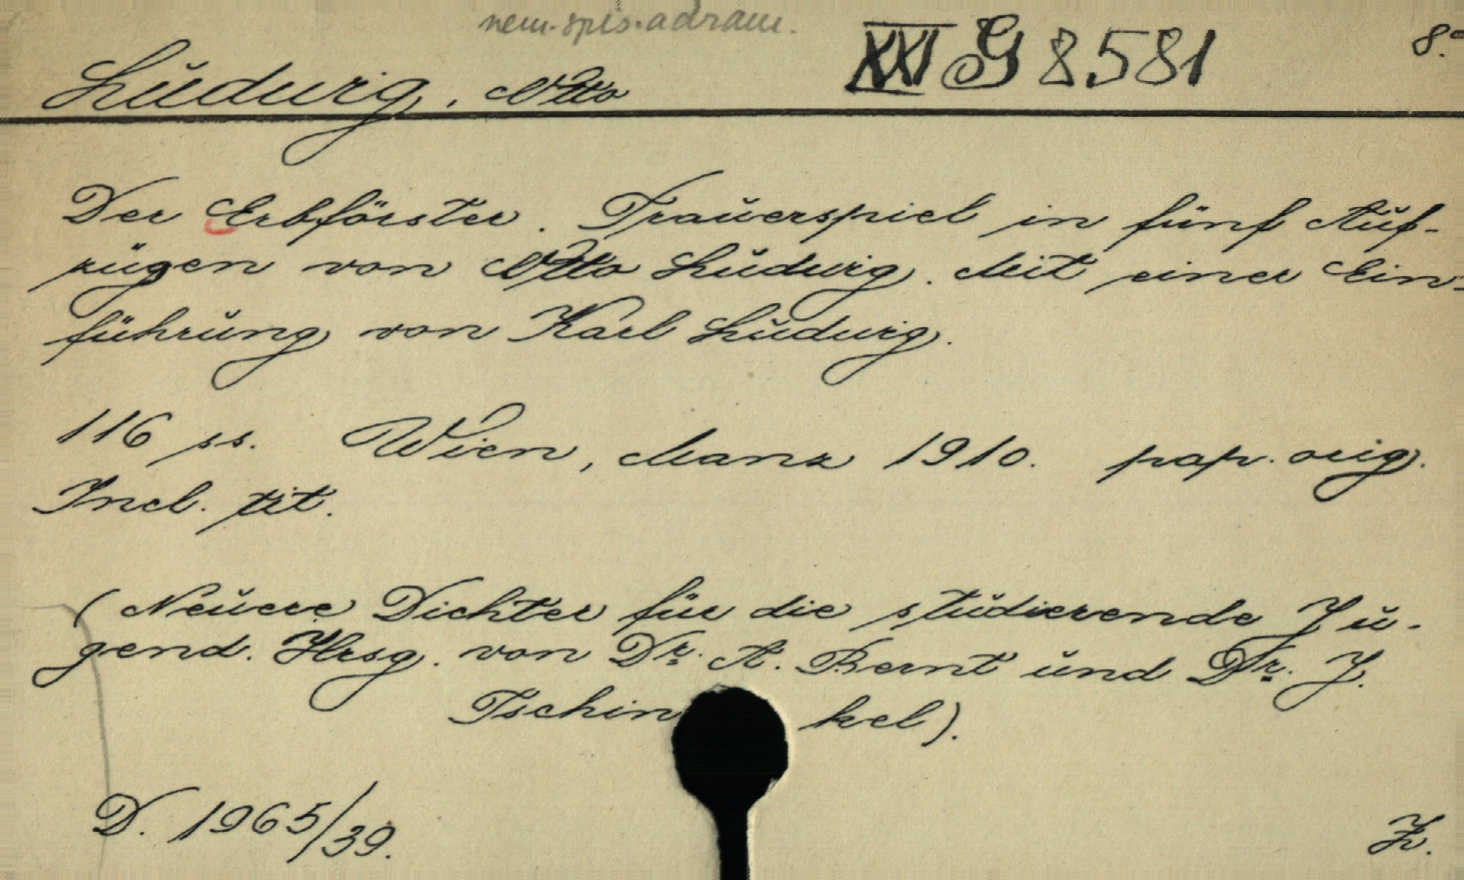 něm. spis. a dram.
Ludwig, Otto XXI G 8581 8°
Der Erbförster. Trauerspiel in fünf Auf-
zügen von Otto Ludwig. Mit einer Ein-
führung von Karl Ludwig.
116 ss. Wien, Manz 1910. pap. orig.
Incl. tit.
(Neuere Dichter für die studierende Ju-
gend. Hrsg. von Dr. A. Bernt und Dr. J.
Tschinkel).
D. 1965/39.